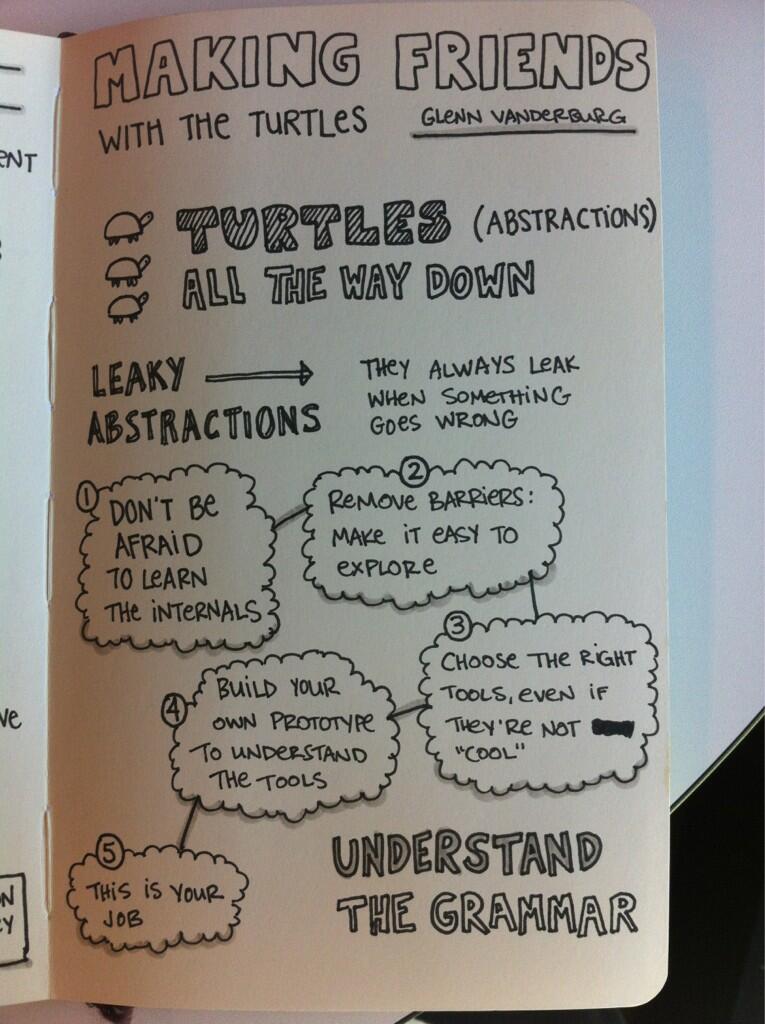 MAKING FRIENDS
WITH THE TURTLES
GLENN VANDERBURG
TURTLES (ABSTRACTIONS)
ALL THE WAY DOWN
LEAKY
ABSTRACTIONS
THEY ALWAYS LEAK
WHEN SOMETHING
GOES WRONG
1
DON'T BE
AFRAID
TO LEARN
THE INTERNALS
2
REMOVE BARRIERS:
MAKE IT EASY TO
EXPLORE
3
CHOOSE THE RIGHT
TOOLS, EVEN IF
THEY'RE NOT
"COOL"
4
BUILD YOUR
OWN PROTOTYPE
TO UNDERSTAND
THE TOOLS
5
THIS IS YOUR
JOB
UNDERSTAND
THE GRAMMAR